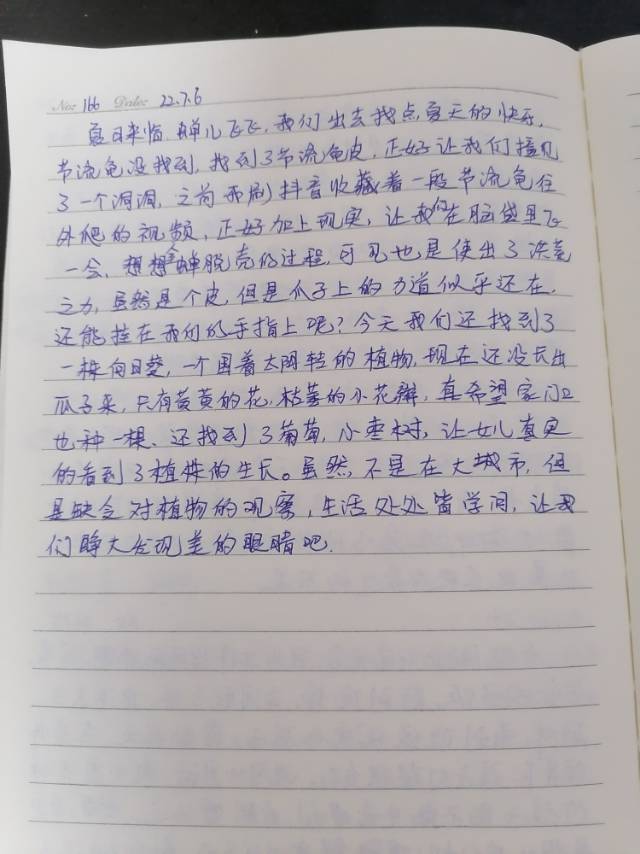 No: 166 Date: 22.7.6
夏日来临,蝉儿飞飞,我们出去找点夏天的快乐,
节流龟没找到,找到了节流龟皮,正好让我们撞见
了一个洞洞,之前我刷抖音收藏着一段节流龟往
外爬的视频,正好加上现实,让我们在脑袋里飞
一会,想想金蝉脱壳的过程,可见也是使出了洪荒
之力,虽然是个皮,但是爪子上的力道似乎还在,
还能挂在我们的手指上呢?今天我们还找到了
一株向日葵,一个围着太阳转的植物,现在还没长出
瓜子来,只有黄黄的花,枯萎的小花瓣,真希望家门口
也种一棵、还找到了葡萄,小枣树,让女儿真实
的看到了植株的生长。虽然,不是在大城市,但
是缺乏对植物的观察,生活处处皆学问,让我
们睁大发现美的眼睛吧.